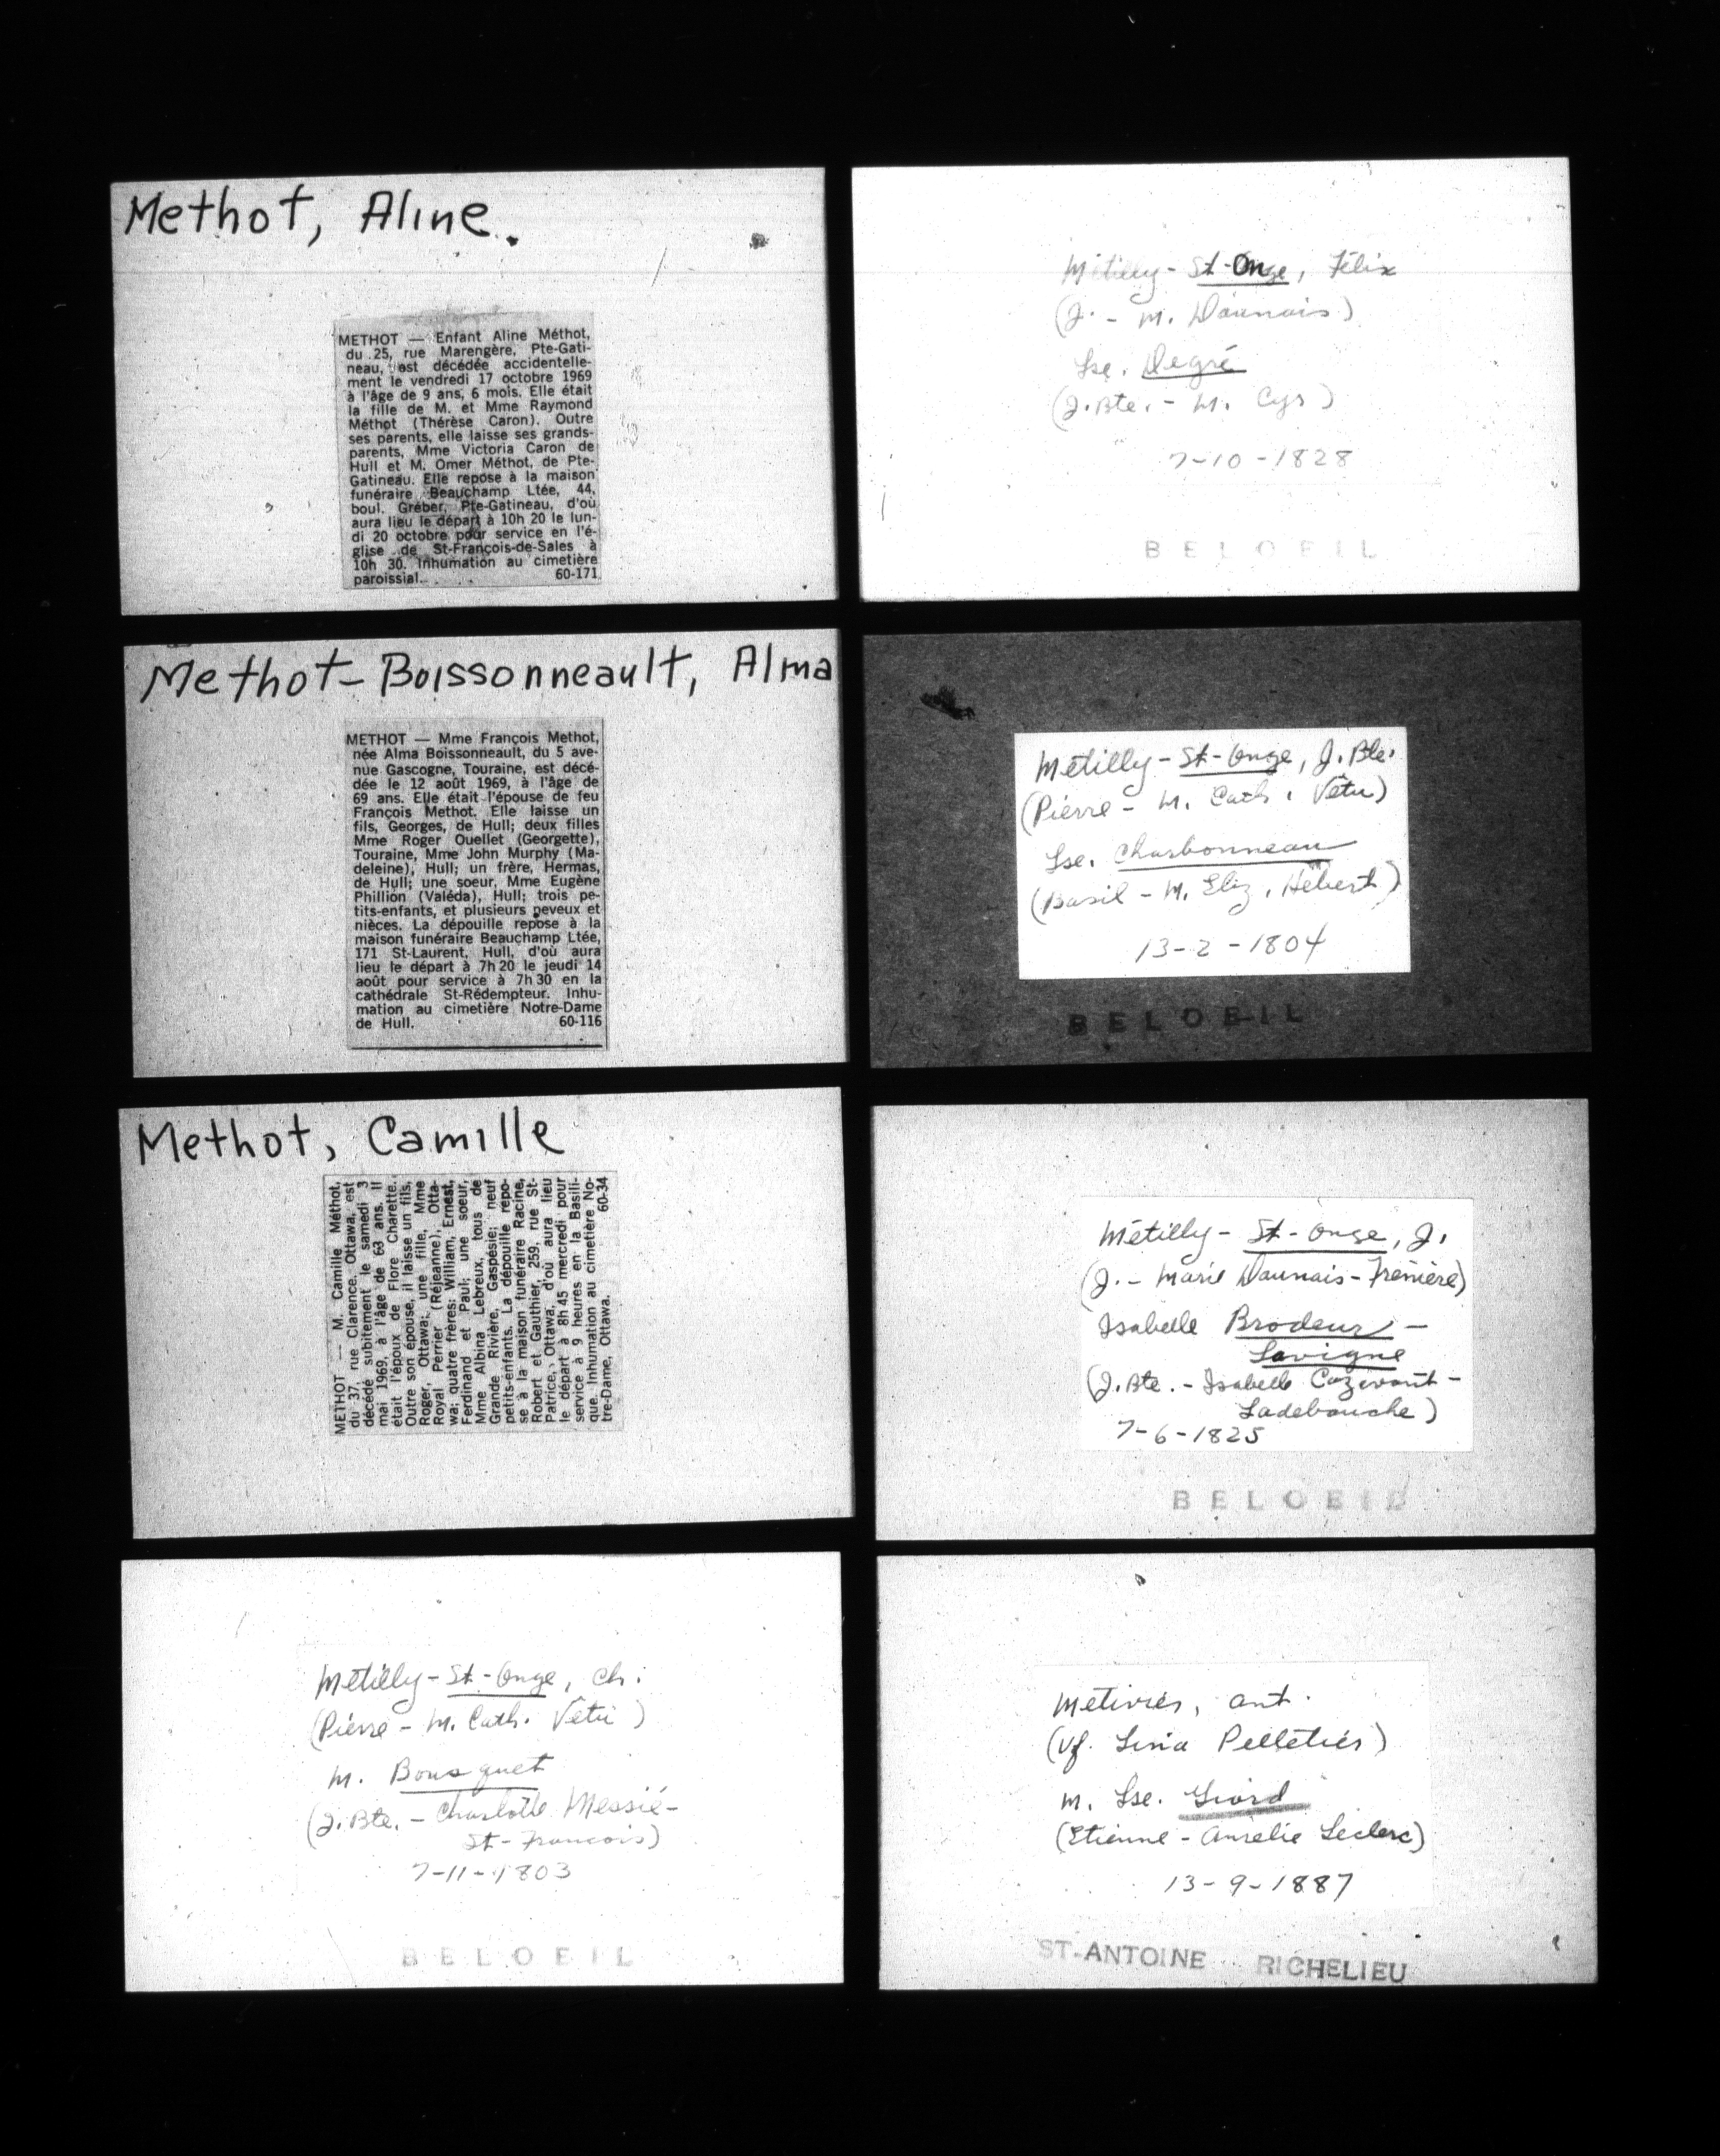 Methot, Aline.
METHOT — Enfant Aline Méthot,
du 25, rue Marengère, Pte-Gati-
neau, est décédée accidentelle-
ment le vendredi 17 octobre 1969
à l'âge de 9 ans, 6 mois. Elle était
la fille de M. et Mme Raymond
Méthot (Thérèse Caron). Outre
ses parents, elle laisse ses grands-
parents, Mme Victoria Caron de
Hull et M. Omer Méthot, de Pte-
Gatineau. Elle repose à la maison
funéraire Beauchamp Ltée, 44,
boul. Gréber, Pte-Gatineau, d'où
aura lieu le départ à 10h 20 le lun-
di 20 octobre pour service en l'é-
glise de St-François-de-Sales à
10h 30. Inhumation au cimetière
paroissial. 60-171
Methot-Boissonneault, Alma
METHOT — Mme François Methot,
née Alma Boissonneault, du 5 ave-
nue Gascogne, Touraine, est décé-
dée le 12 août 1969, à l'âge de
69 ans. Elle était l'épouse de feu
François Methot. Elle laisse un
fils, Georges, de Hull; deux filles
Mme Roger Ouellet (Georgette),
Touraine, Mme John Murphy (Ma-
deleine), Hull; un frère, Hermas,
de Hull; une soeur, Mme Eugène
Phillion (Valéda), Hull; trois pe-
tits-enfants, et plusieurs neveux et
nièces. La dépouille repose à la
maison funéraire Beauchamp Ltée,
171 St-Laurent, Hull, d'où aura
lieu le départ à 7h 20 le jeudi 14
août pour service à 7h 30 en la
cathédrale St-Rédempteur. Inhu-
mation au cimetière Notre-Dame
de Hull. 60-116
Methot, Camille
METHOT — M. Camille Méthot,
du 37, rue Clarence, Ottawa, est
décédé subitement le samedi 3
mai 1969, à l'âge de 63 ans. Il
était l'époux de Flore Charette.
Outre son épouse, il laisse un fils,
Roger, Ottawa; une fille, Mme
Royal Perrier (Réjeanne), Otta-
wa; quatre frères: William, Ernest,
Ferdinand et Paul; une soeur,
Mme Albina Lebreux, tous de
Grande Rivière, Gaspésie; neuf
petits-enfants. La dépouille repo-
se à la maison funéraire Racine,
Robert et Gauthier, 259, rue St-
Patrice, Ottawa, d'où aura lieu
le départ à 8h 45 mercredi pour
service à 9 heures en la Basili-
que. Inhumation au cimetière No-
tre-Dame, Ottawa. 60-34
Métilly-St-Onge, Ch.
(Pierre - M. Cath. Vêtu)
M. Bousquet
(J. Bte. - Charlotte Messié-
St-Francois)
7-11-1803
BELOEIL
Métilly-St-Onge, Félix
(J. - M. Daunais)
Lse. Degré
(J. Bte. - M. Cys)
7-10-1828
BELOEIL
Métilly-St-Onge, J. Bte.
(Pierre - M. Cath. Vêtu)
Lse. Charbonneau
(Basil - M. Eliz. Hébert)
13-2-1804
BELOEIL
Métilly-St-Onge, J.
(J. - Marie Daunais-Frenière)
Isabelle Brodeur-
Lavigne
(J. Bte. - Isabelle Cazevant-
Ladebauche)
7-6-1825
BELOEIL
Metivier, Ant.
(Vf. Lina Pelletier)
M. Lse. Giard
(Etienne - Aurelie Leclerc)
13-9-1887
ST-ANTOINE RICHELIEU